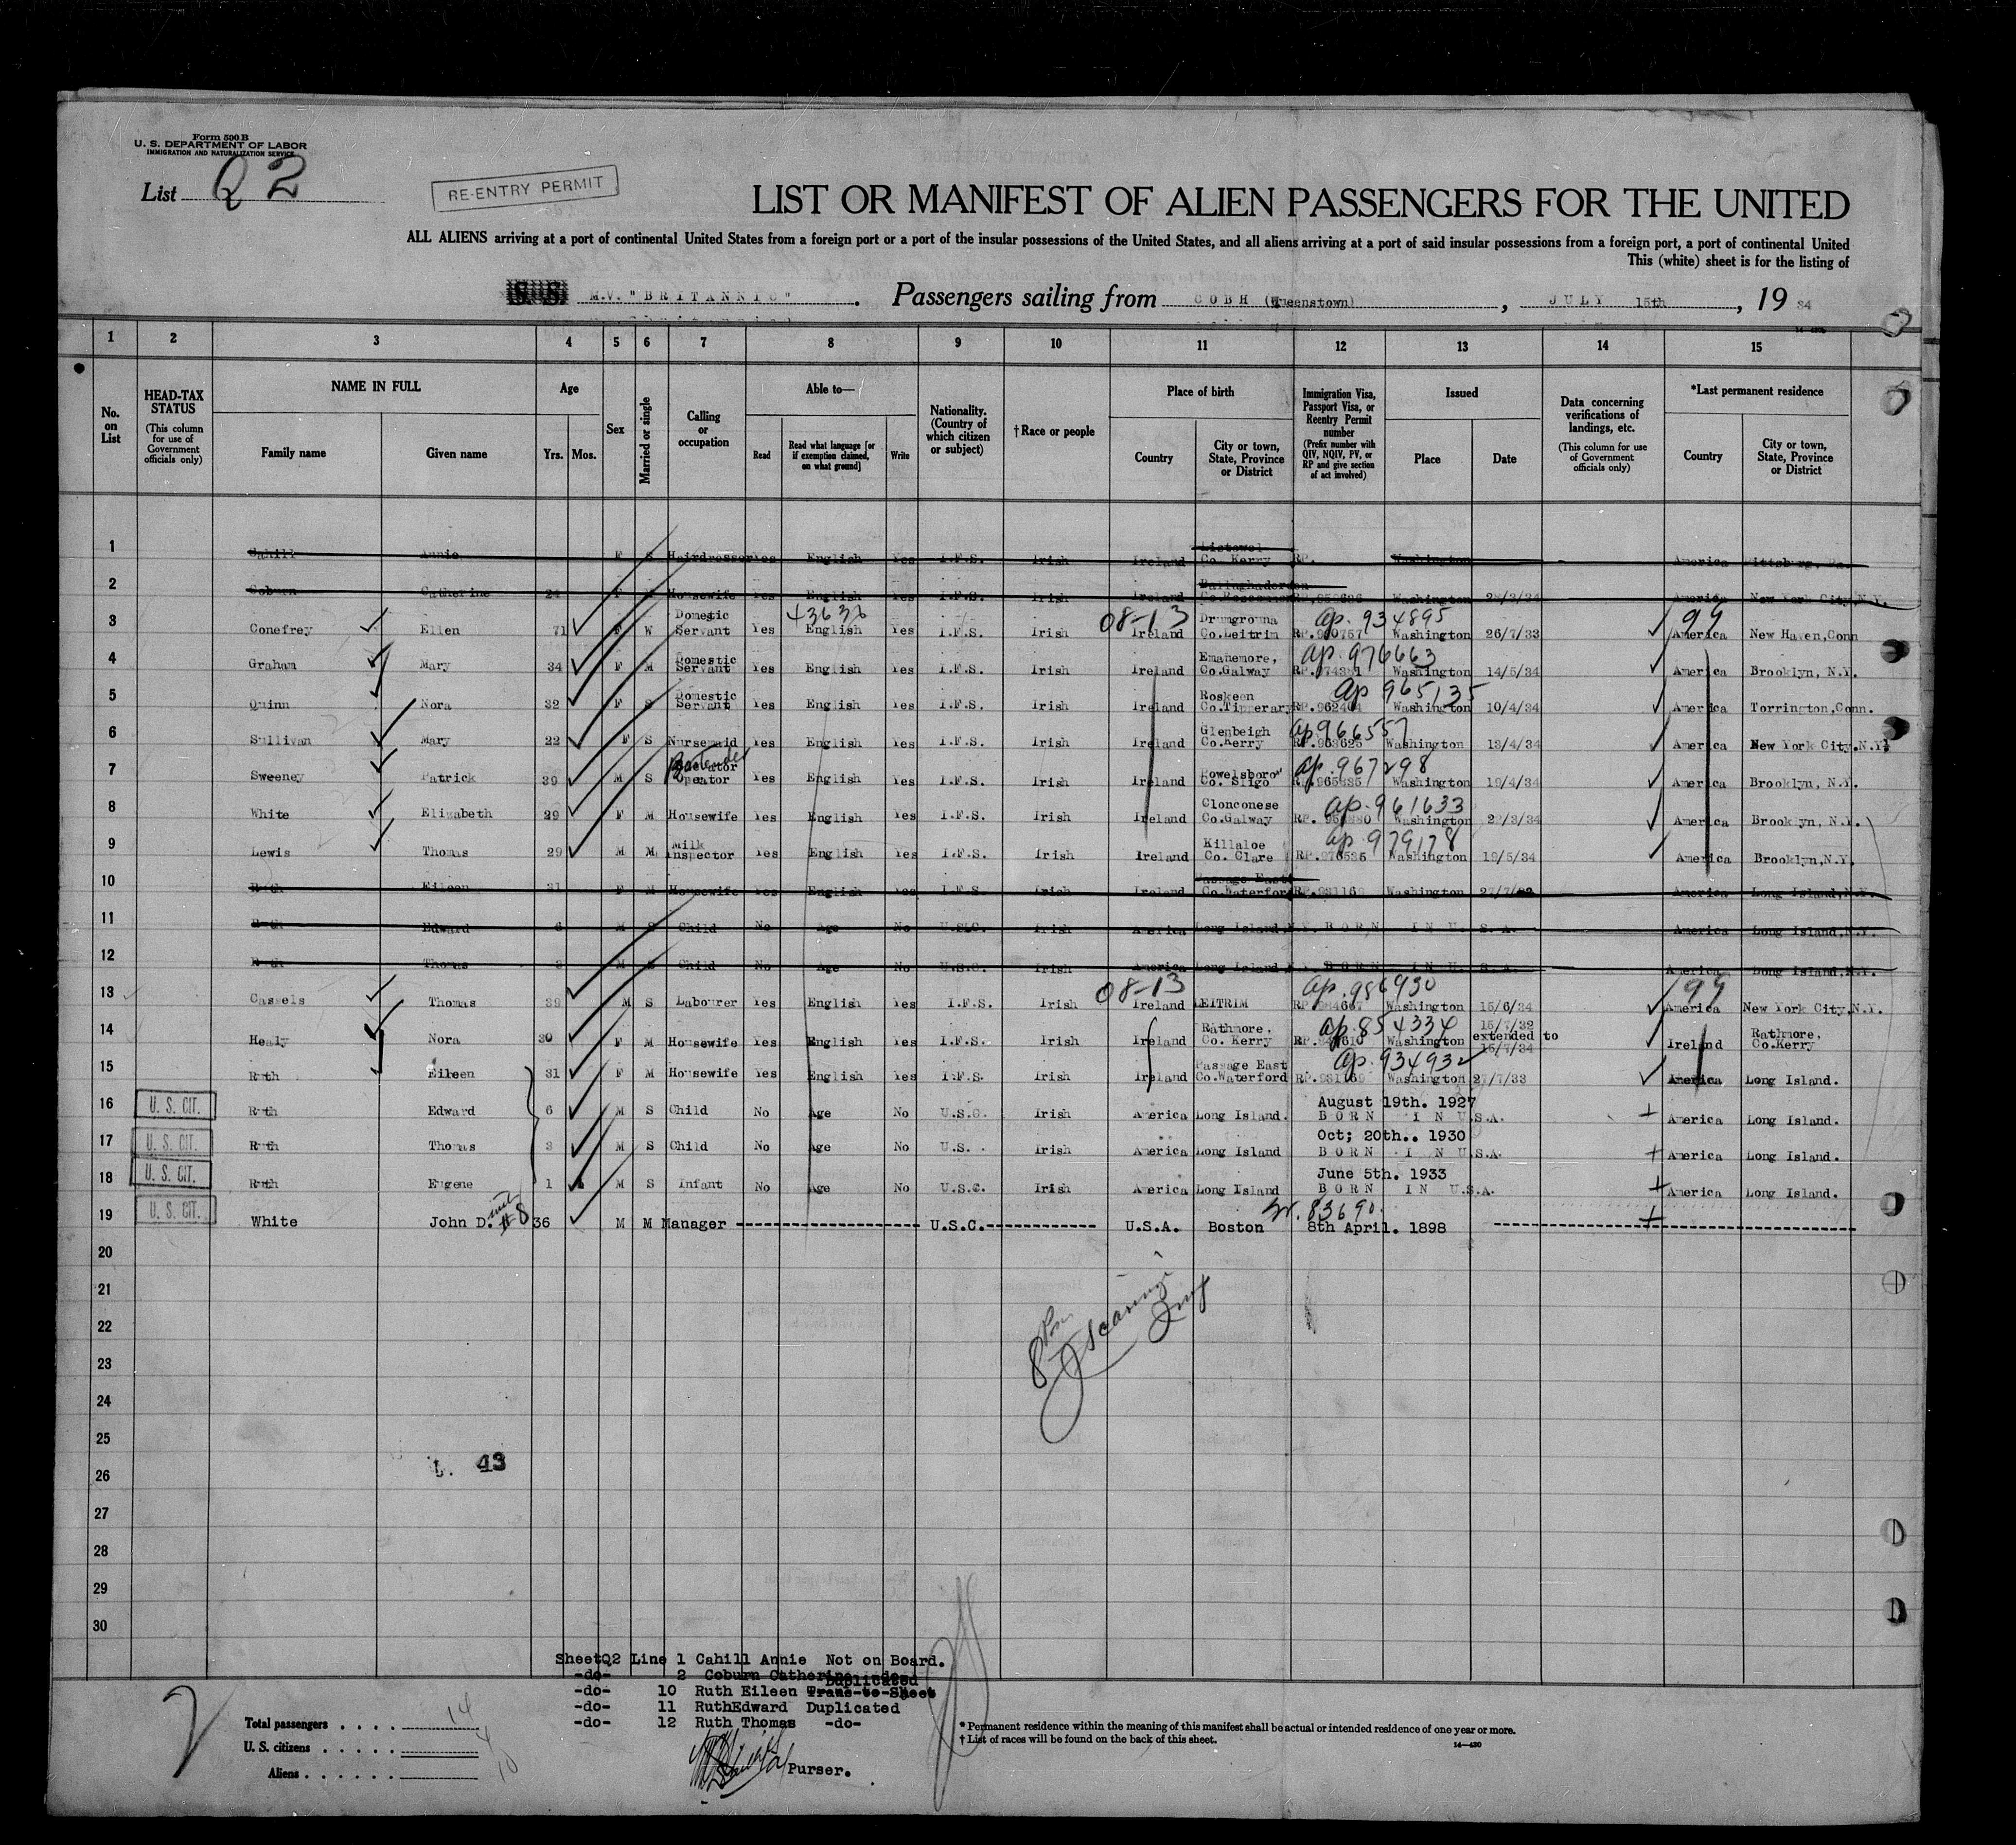 Form 500 B
U. S. DEPARTMENT OF LABOR
IMMIGRATION AND NATURALIZATION SERVICE
List Q2
RE-ENTRY PERMIT
LIST OR MANIFEST OF ALIEN PASSENGERS FOR THE UNITED
ALL ALIENS arriving at a port of continental United States from a foreign port or a port of the insular possessions of the United States, and all aliens arriving at a port of said insular possessions from a foreign port, a port of continental United
This (white) sheet is for the listing of
S S M.V. "BRITANNIC". Passengers sailing from COBH (Queenstown), JULY 15th, 19 34
1 2 3 4 5 6 7 8 9 10 11 12 13 14 15
No. on List
HEAD-TAX STATUS (This column for use of Government officials only)
NAME IN FULL Family name Given name
Age Yrs. Mos.
Sex
Married or single
Calling or occupation
Able to— Read Read what language [or if exemption claimed, on what ground] Write
Nationality. (Country of which citizen or subject)
†Race or people
Place of birth Country City or town, State, Province or District
Immigration Visa, Passport Visa, or Reentry Permit number (Prefix number with QIV, NQIV, PV, or RP and give section of act involved)
Issued Place Date
Data concerning verifications of landings, etc. (This column for use of Government officials only)
*Last permanent residence Country City or town, State, Province or District
1 Cahill Annie F S Hairdresser Yes English Yes I.F.S. Irish Ireland Listowel Co. Kerry RP. Washington America Pittsburg, Pa.
2 Coburn Catherine 24 F Housewife Yes English Yes I.F.S. Irish Ireland Washington America New York City, N.Y.
3 Conefrey Ellen 71 F W Domestic Servant Yes 43636 English Yes I.F.S. Irish 08-13 Ireland Drumgrouna Co.Leitrim ap. 934895 Washington 26/7/33 99 America New Haven, Conn
4 Graham Mary 34 F M Domestic Servant Yes English Yes I.F.S. Irish Ireland Emahemore, Co.Galway ap. 976663 Washington 14/5/34 America Brooklyn, N.Y.
5 Quinn Nora 32 F S Domestic Servant Yes English Yes I.F.S. Irish Ireland Roskeen Co.Tipperary ap 965135 Washington 10/4/34 America Torrington, Conn.
6 Sullivan Mary 22 F S Nursemaid Yes English Yes I.F.S. Irish Ireland Glenbeigh Co.Kerry ap 966557 RP.963625 Washington 13/4/34 America New York City, N.Y.
7 Sweeney Patrick 39 M S Bartender Operator Yes English Yes I.F.S. Irish Ireland Co. Sligo ap. 967298 Washington 19/4/34 America Brooklyn, N.Y.
8 White Elizabeth 29 F M Housewife Yes English Yes I.F.S. Irish Ireland Clonconese Co.Galway ap. 961633 Washington America Brooklyn, N.Y.
9 Lewis Thomas 29 M M Milk Inspector Yes English Yes I.F.S. Irish Ireland Killaloe Co. Clare ap. 979178 RP.976535 Washington 19/5/34 America Brooklyn, N.Y.
10 Ruth Eileen 31 F M Housewife Yes English Yes I.F.S. Irish Ireland Passage East Co.Waterford RP.931169 Washington America Long Island, N.Y.
11 Ruth Edward 6 M S Child No Age No U.S.C. Irish America Long Island N.Y. BORN IN U. S. A. America Long Island, N.Y.
12 Ruth Thomas 3 M S Child No Age No U.S.C. Irish America Long Island N.Y. BORN IN U. S. A. America Long Island, N.Y.
13 Cassels Thomas 39 M S Labourer Yes English Yes I.F.S. Irish 08-13 Ireland LEITRIM ap. 986930 Washington 15/6/34 99 America New York City, N.Y.
14 Healy Nora 30 F M Housewife Yes English Yes I.F.S. Irish Ireland Rathmore, Co. Kerry ap. 854334 Washington 15/7/32 extended to 15/7/34 Ireland Rathmore, Co.Kerry
15 Ruth Eileen 31 F M Housewife Yes English Yes I.F.S. Irish Ireland Passage East Co.Waterford ap. 934932 RP.931169 Washington 27/7/33 America Long Island.
16 U. S. CIT. Ruth Edward 6 M S Child No Age No U.S.C. Irish America Long Island. August 19th. 1927 BORN IN U.S.A. America Long Island.
17 U. S. CIT. Ruth Thomas 3 M S Child No Age No U.S. Irish America Long Island Oct; 20th.. 1930 BORN I N U.S.A. America Long Island.
18 U. S. CIT. Ruth Eugene 1 M S Infant No Age No U.S.C. Irish America Long Island June 5th. 1933 BORN IN U.S.A. America Long Island.
19 U. S. CIT. White John D. #8 36 M M Manager U.S.C. U.S.A. Boston 83690 8th April. 1898
20
21
22
23
24
25
26 L. 43
27
28
29
30
SheetQ2 Line 1 Cahill Annie Not on Board.
-do- 2 Coburn Catherine -do-
-do- 10 Ruth Eileen Trans-to-Sheet Duplicated
-do- 11 RuthEdward Duplicated
-do- 12 Ruth Thomas -do-
Purser.
Total passengers 14
U. S. citizens 4
Aliens 10
* Permanent residence within the meaning of this manifest shall be actual or intended residence of one year or more.
† List of races will be found on the back of this sheet.
14—430